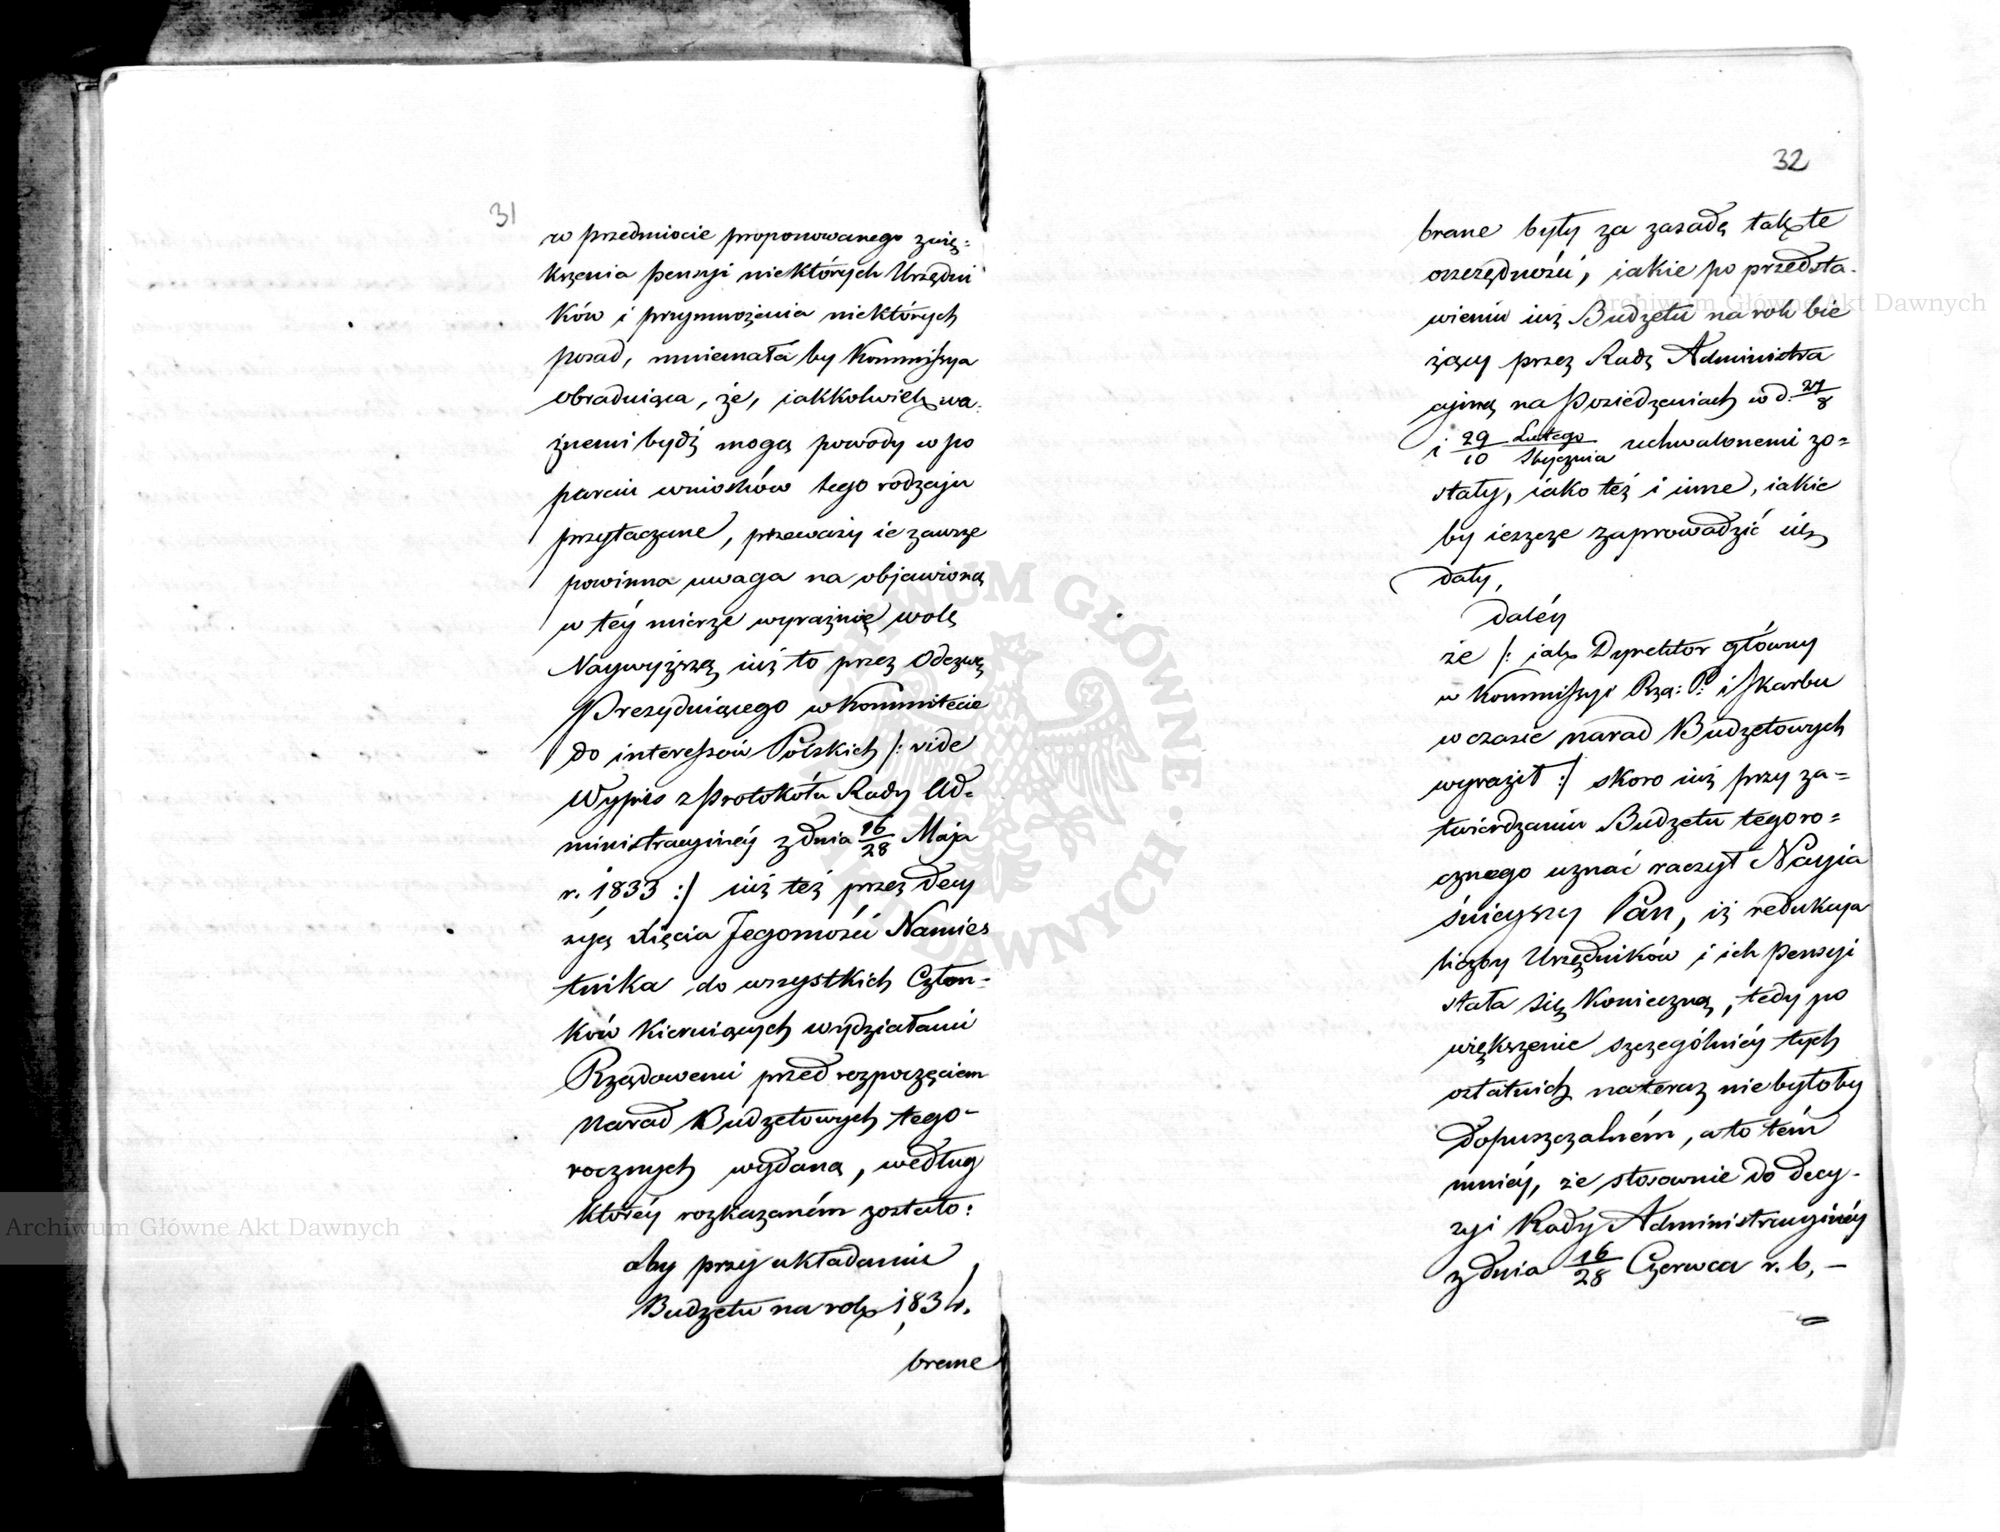 31
w przedmiocie proponowanego zwię-
kszenia pensyi niektórych Urzędni
ków i przymnożenia niektórych
posad, mniemała by Kommissya
obraduiąca, że, iakkolwiek wa-
żnemi bydź mogą powody w po
parciu wniosków tego rodzaju
przytaczane, przeważy ie zawsze
powinna uwaga na objawioną
w téy mierze wyraźnie wolę
Naywyższą iuż to przez Odezwę
Prezyduiącego w Kommitecie
do interessów Polskich /: vide
Wypis z Protokółu Rady Ad-
ministracyinéy z dnia 16/28 Maja
r. 1833 :/ iuż też przez decy
zyą Xięcia Jegomości Namies
tnika do wszystkich Człon-
ków kieruiących wydziałami
Rządowemi przed rozpoczęciem
narad Budżetowych tego-
rocznych wydaną, według
któréy rozkazaném zostało:
aby przy układaniu
Budżetu na rok 1834.
brane
32
brane były za zasadę także te
oszczędności, iakie po przedsta-
wieniu iuż Budżetu na rok bie
żący przez Radę Administra
cyiną na Posiedzeniach w d. 27/8
i 29/10 Lutego/Stycznia uchwalonemi zo-
stały, iako też i inne, iakie
by ieszcze zaprowadzić się
dały,
daléy
że /: iak Dyrektor główny
w Kommissyi Rzą: P: i Skarbu
w czasie narad Budżetowych
wyraził :/ skoro iuż przy za-
twierdzaniu Budżetu tegoro-
cznego uznać raczył Nayia
śnieyszy Pan, iż redukcya
liczby Urzędników i ich pensyi
stała się konieczną, tedy po
większenie szczególniéy tych
ostatnich na teraz nie byłoby
dopuszczalném, a to tém
mniéy, że stosownie do decy-
zyi Rady Administracyinéy
z dnia 16/28 Czerwca r. b. —
Archiwum Główne Akt Dawnych
Archiwum Główne Akt Dawnych
ARCHIWUM GŁÓWNE · AKT DAWNYCH ·